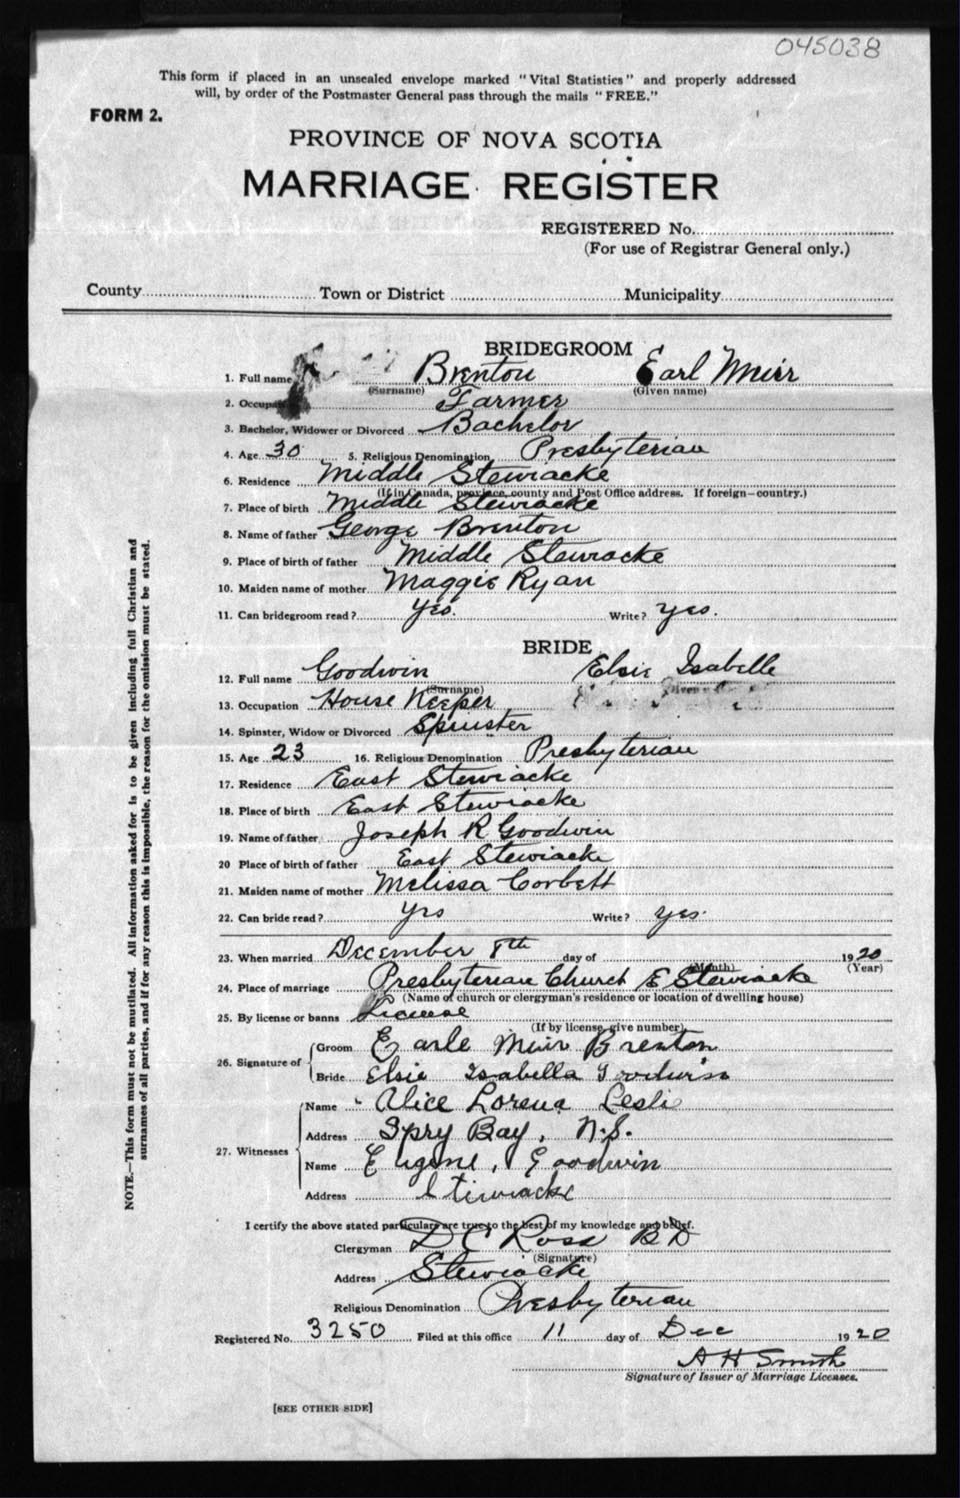 045038
This form if placed in an unsealed envelope marked "Vital Statistics" and properly addressed
will, by order of the Postmaster General pass through the mails "FREE."
FORM 2.
PROVINCE OF NOVA SCOTIA
MARRIAGE REGISTER
REGISTERED No.
(For use of Registrar General only.)
County Town or District Municipality
BRIDEGROOM
1. Full name Brenton Earl Muir
(Surname) (Given name)
2. Occupa Farmer
3. Bachelor, Widower or Divorced Bachelor
4. Age 30 5. Religious Denomination Presbyterian
6. Residence Middle Stewiacke
(If in Canada, province, county and Post Office address. If foreign—country.)
7. Place of birth Middle Stewiacke
8. Name of father George Brenton
9. Place of birth of father Middle Stewiacke
10. Maiden name of mother Maggie Ryan
11. Can bridegroom read? Yes. Write? yes.
BRIDE
12. Full name Goodwin Elsie Isabelle
(Surname)
13. Occupation House Keeper
14. Spinster, Widow or Divorced Spinster
15. Age 23 16. Religious Denomination Presbyterian
17. Residence East Stewiacke
18. Place of birth East Stewiacke
19. Name of father Joseph R Goodwin
20 Place of birth of father East Stewiacke
21. Maiden name of mother Melissa Corbett
22. Can bride read? yes Write? yes.
23. When married December 8th day of 1920
(Month) (Year)
24. Place of marriage Presbyterian Church E Stewiacke
(Name of church or clergyman's residence or location of dwelling house)
25. By license or banns License
(If by license, give number)
26. Signature of Groom Earle Muir Brenton
Bride Elsie Isabella Goodwin
27. Witnesses Name Alice Lorena Leslie
Address Spry Bay, N.S.
Name Eugene, Goodwin
Address Stewiacke
I certify the above stated particulars are true to the best of my knowledge and belief.
Clergyman D C Ross BD
(Signature)
Address Stewiacke
Religious Denomination Presbyterian
Registered No. 3250 Filed at this office 11 day of Dec 1920
A H Smith
Signature of Issuer of Marriage Licenses.
[SEE OTHER SIDE]
NOTE.—This form must not be mutilated. All information asked for is to be given including full Christian and
surnames of all parties, and if for any reason this is impossible, the reason for the omission must be stated.